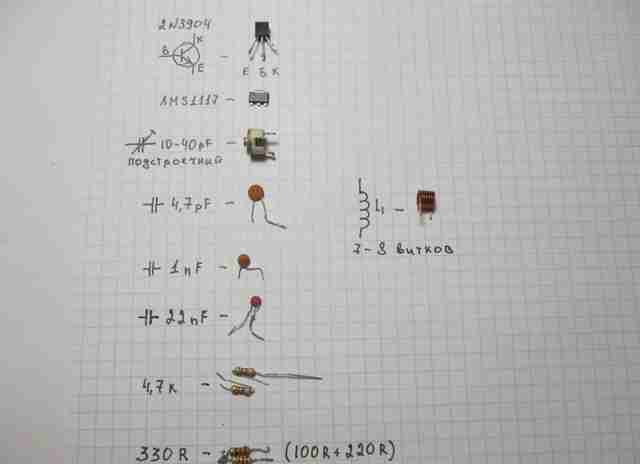 2N3904
K
B
E
E Б K
AMS1117 -
10-40pF
подстроечный
4,7pF -
1nF -
22nF -
4,7к -
330R - (100R+220R)
L1 -
7-8 витков